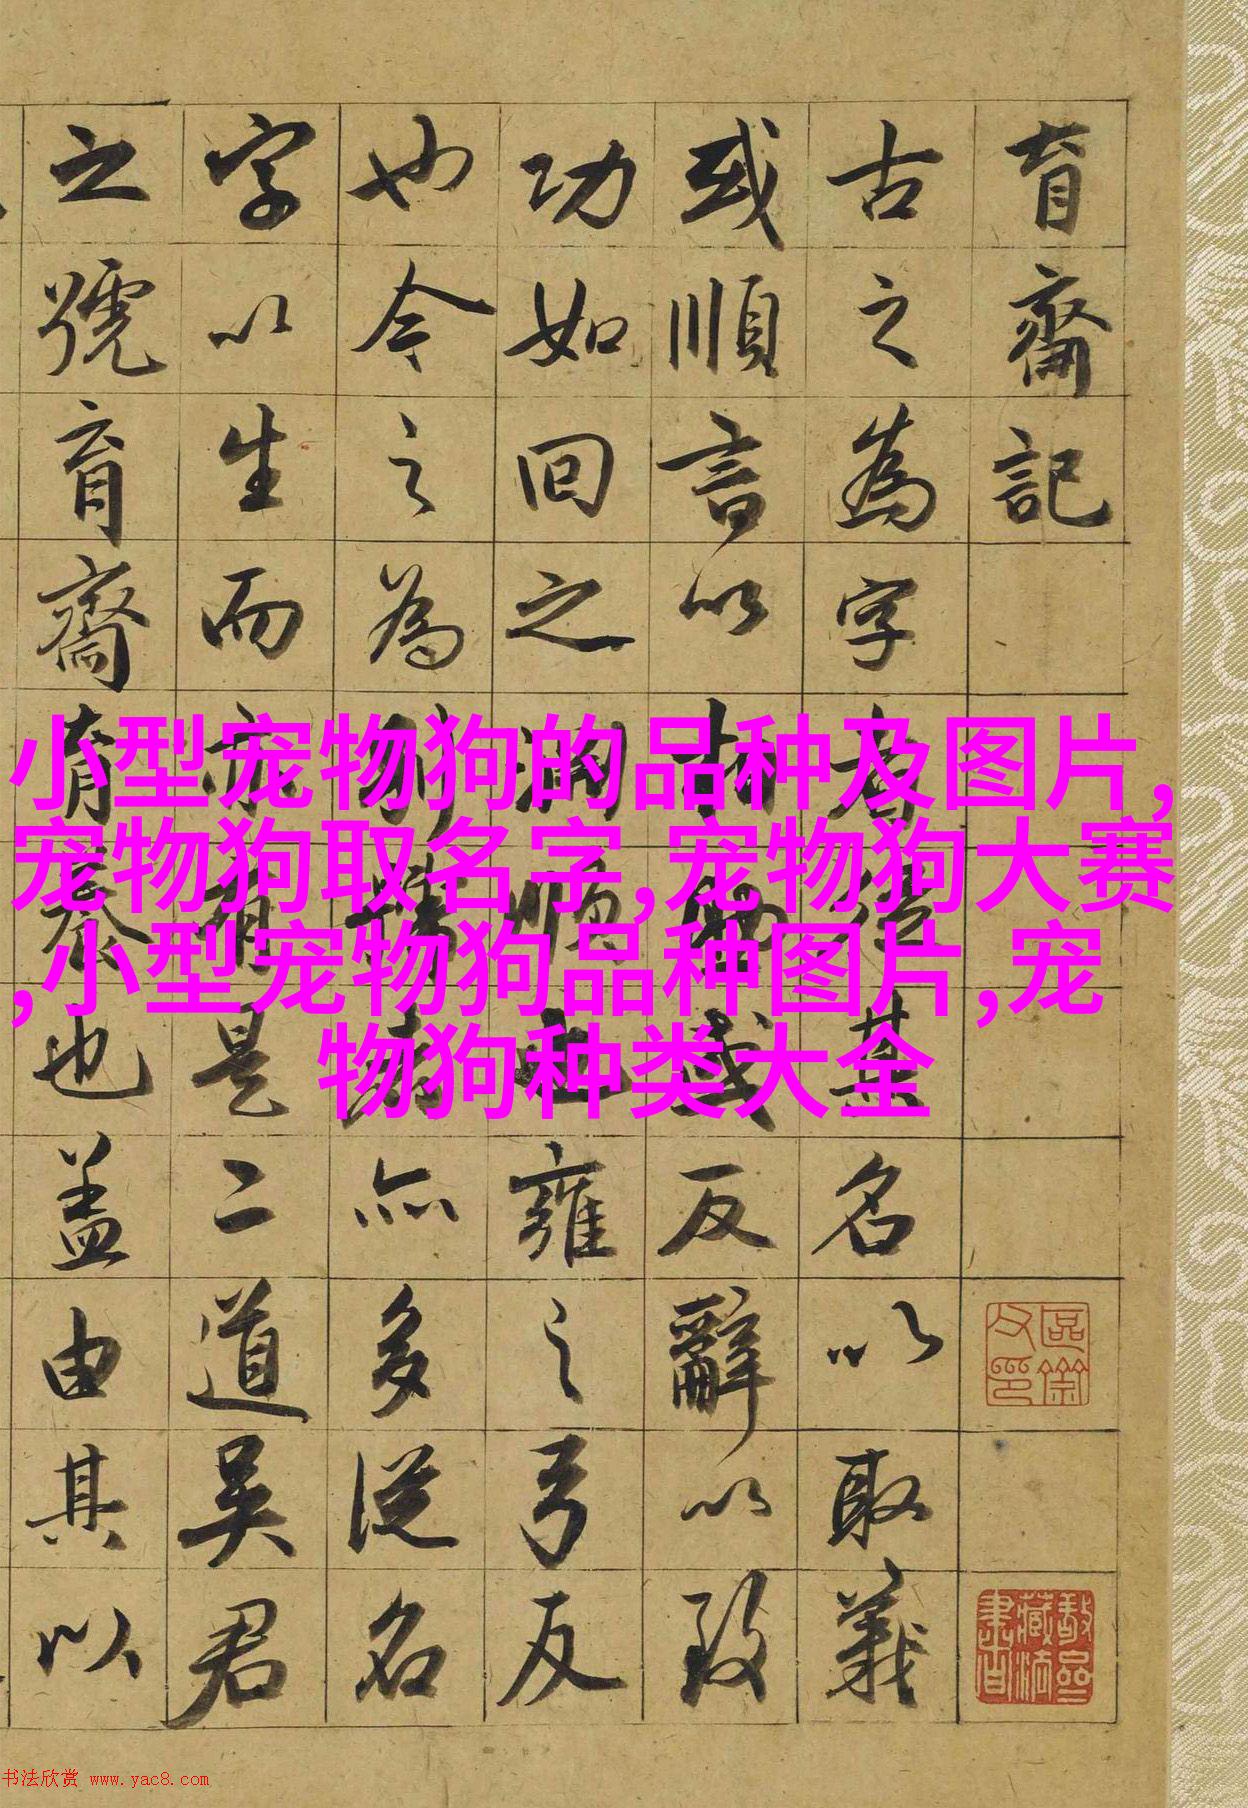 育齋記
古之為字者
其名以取義
或順言以
反辭以致
功如回之
雍之弓反
也今之為別
亦多從名
字以生而亦有
是二道吳君
之號育齋育
養也蓋由其以
小型宠物狗的品种及图片,
宠物狗取名字,宠物狗大赛
,小型宠物狗品种图片,宠
物狗种类大全
书法欣赏 www.yac8.com